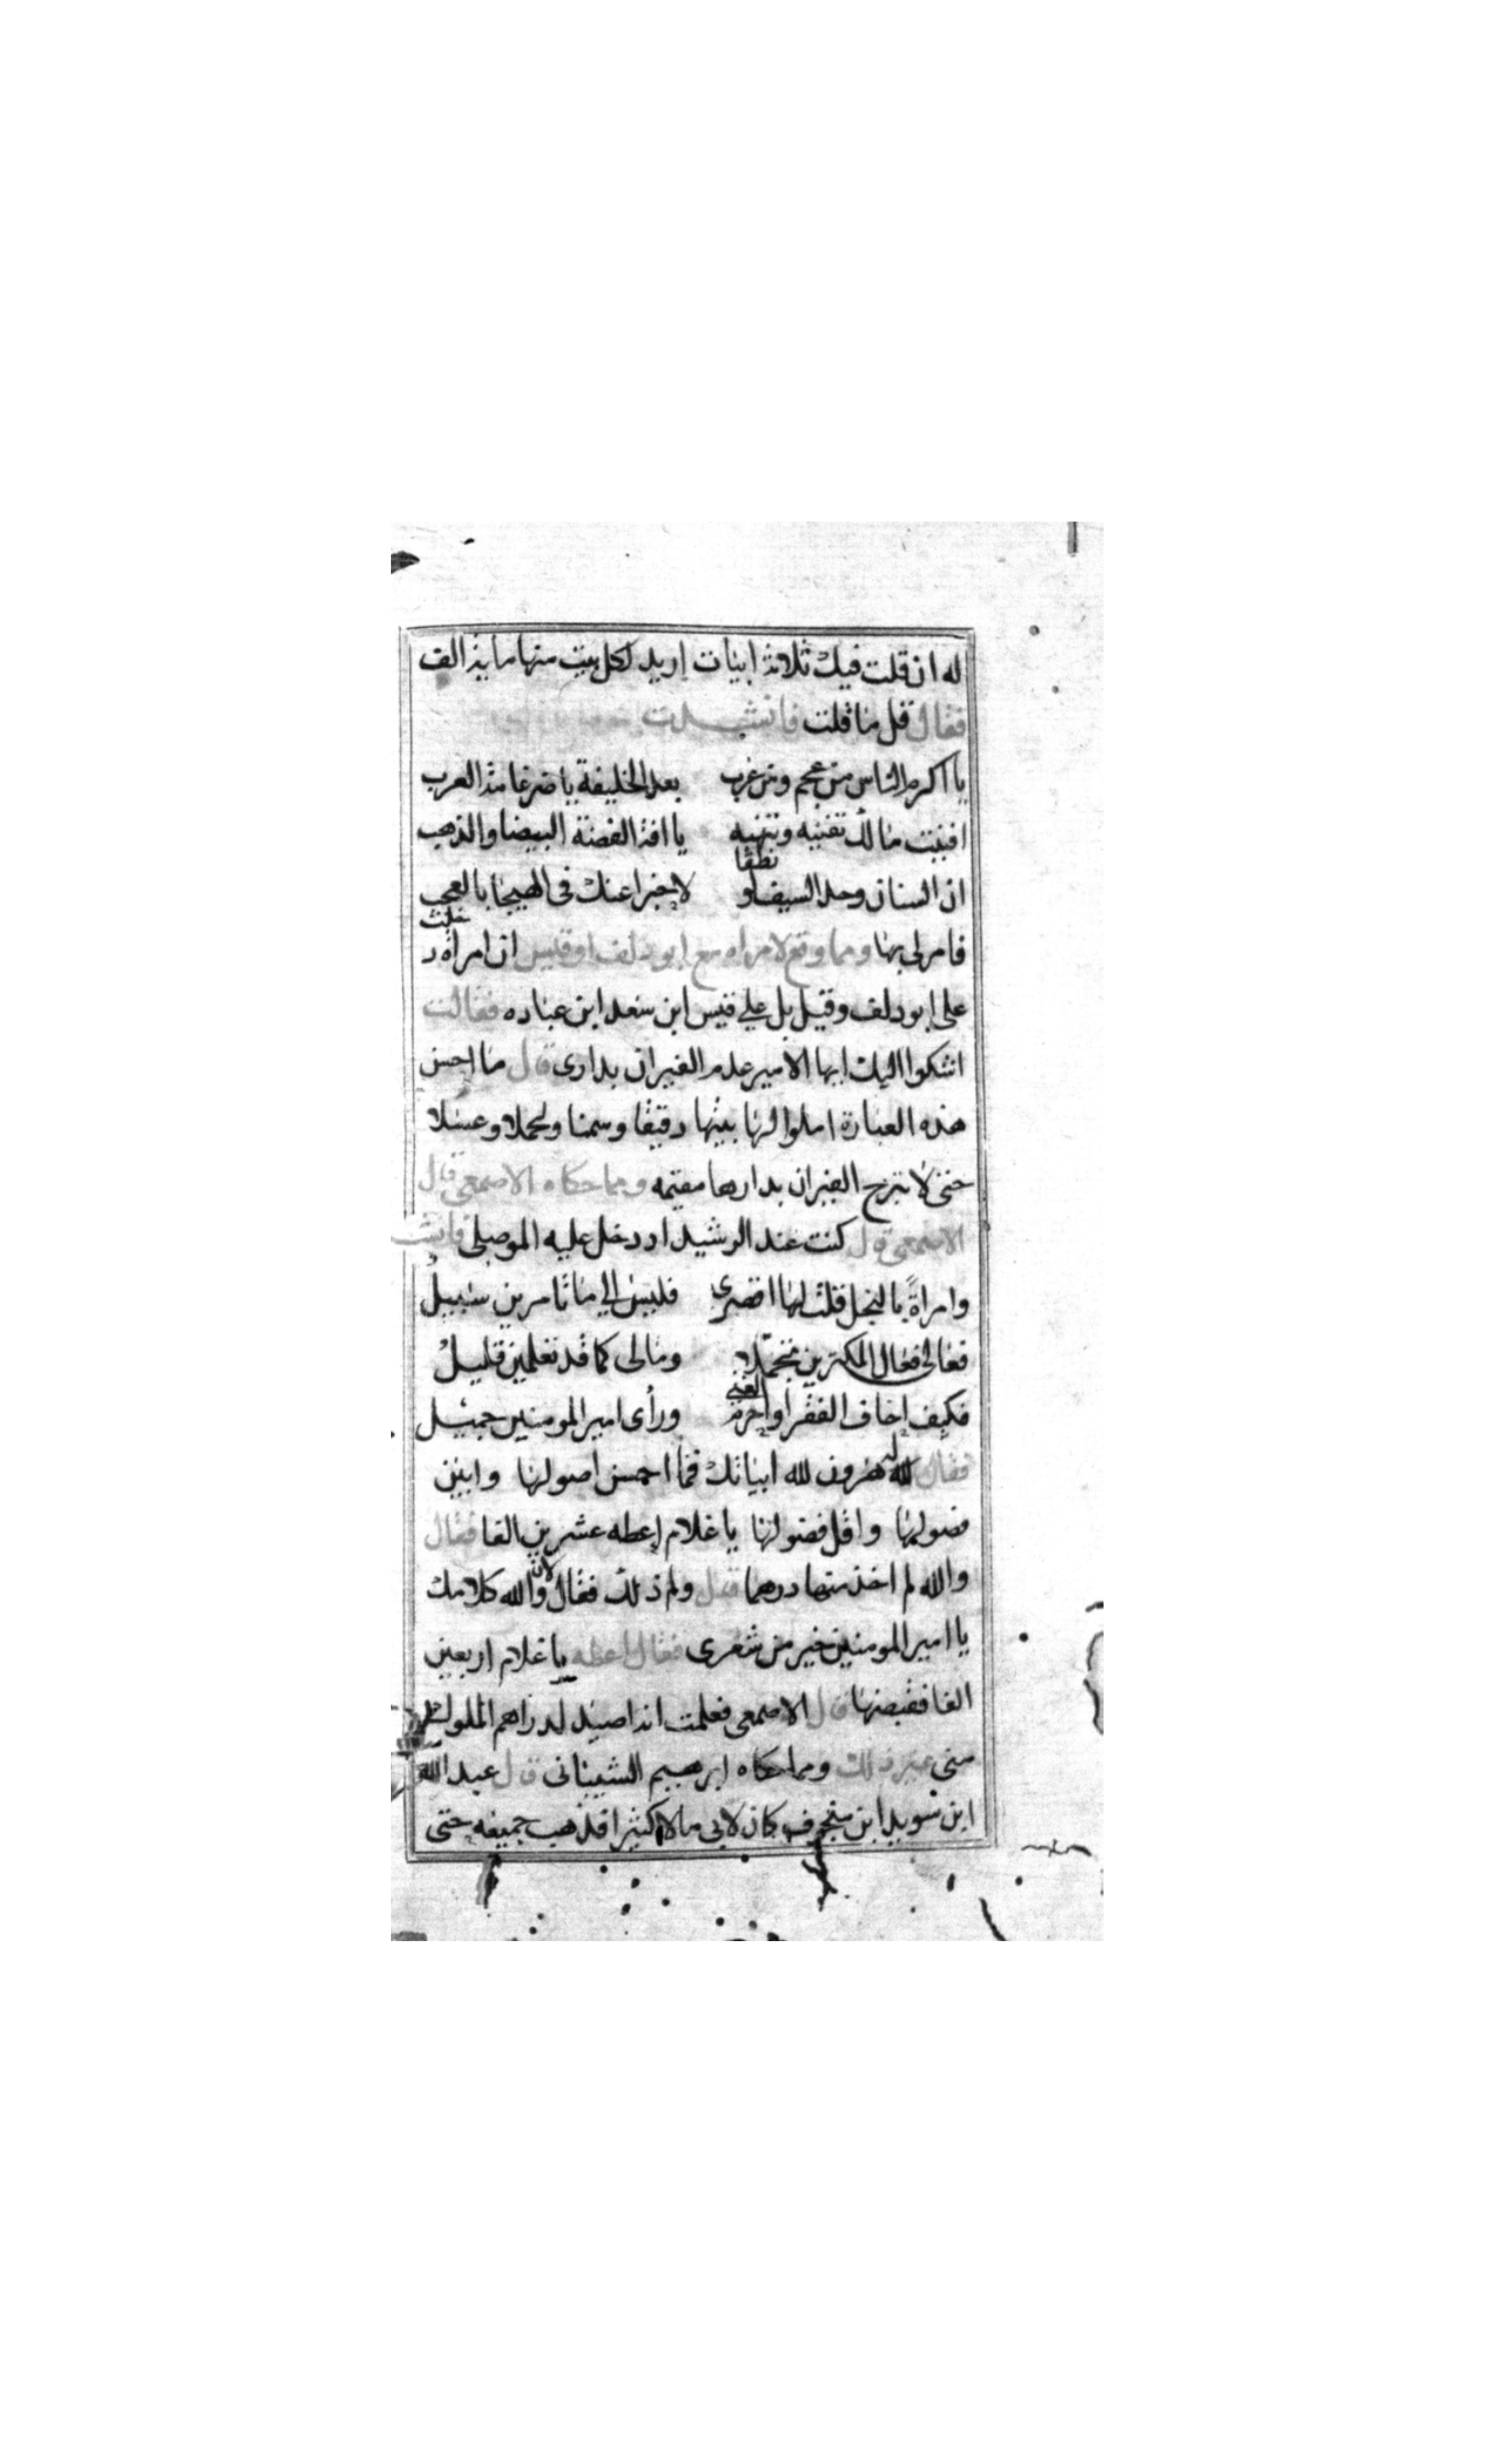 له ان قلت فيك ثلاثة ابيات اريد لكل بيت منها ماية الف
فقال قل ما قلت فانشدت
يا اكرم الناس من عجم ومن عرب بعد الخليفة يا ضرغامة العرب
افنيت مالك تفنيه وتنهبه يا افة الفضة البيضا والذهب
ان السنان وحد السيف لو نطقا لاخبرا عنك في الهيجا بالعجب
فامر لي بها ومما وقع لامراه مع ابو دلف او قيس ان امراة دخلت
على ابو دلف وقيل بل علي قيس ابن سعد ابن عباده فقالت
اشكوا اليك ايها الامير عدم الفيران بداري قال ما احسن
هذه العبارة املوا لها بيتها دقيقا وسمنا ولحما وعسلا
حتى لا تبرح الفيران بدارها مقيمه ومما حكاه الاصمعي قال
الاصمعي قال كنت عند الرشيد اد دخل عليه الموصلي فانشد
وامراة بالبخل قلت لها اقصري فليس الي ما تامرين سبيل
فعالي فعال المكثرين تجملا ومالي كما قد تعلمين قليل
فكيف اخاف الفقر او احرم الغنى وراى امير المومنين جميل
فقال هرون لله ابياتك فما احسن اصولها وابين
فصولها واقل فضولها يا غلام اعطه عشرين الفا فقال
والله لم اخذ منها درهما قال ولم ذلك فقال لان والله كلامك
يا امير المومنين خير من شعري فقال اعطه يا غلام اربعين
الفا فقبضها قال الاصمعي فعلمت انه اصيد لدراهم الملوك
مني غير ذلك ومما حكاه ابرهيم الشيباني قال عبد الله
ابن سويد ابن منجوف كان لابي مالا كثيرا فذهب جميعه حتى